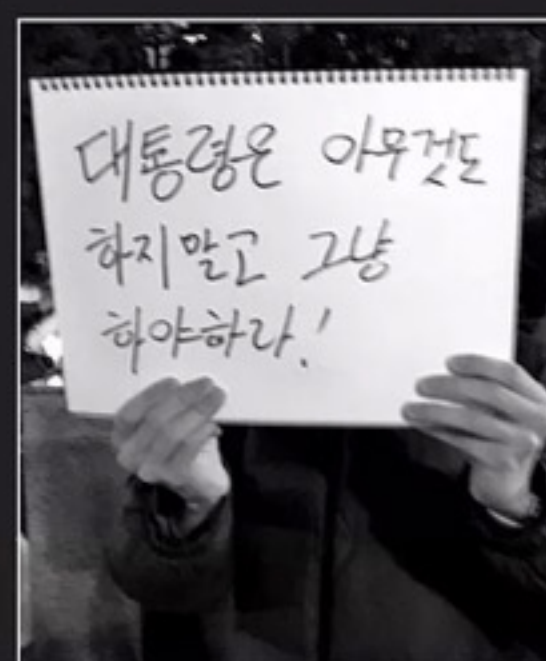 대통령은 아무것도
하지말고 그냥
하야하라!